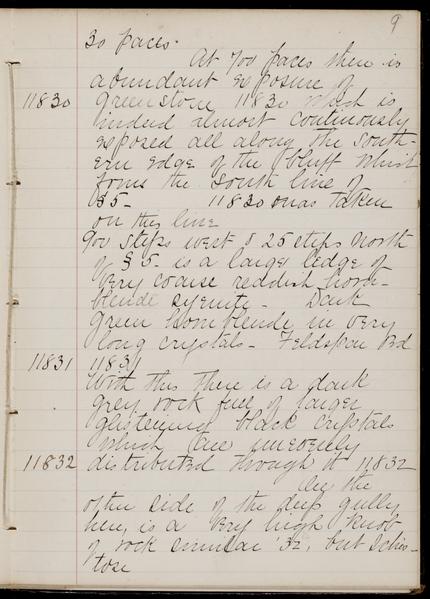 9
30 paces.
At 700 paces there is
abundant exposure of
11830 Greenstone 11830 which is
indeed almost continuously
exposed all along the south-
ern edge of the bluff which
forms the south line of
§5- 11830 was taken
on this line
900 steps west & 25 steps north
of §5- is a large ledge of
very coarse reddish horn-
blende syenite - Dark
green hornblende in very
long crystals - Feldspar red
11831 11831
With this there is a dark
grey rock full of larger
glistening black crystals
which are unevenly
11832 distributed through it 11832
On the
other side of the deep gully
here, is a very high knob
of rock similar '32, but schis-
tose